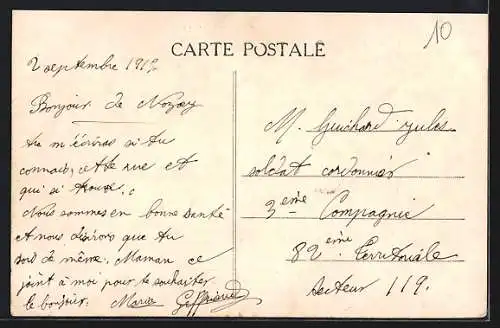 10
CARTE POSTALE
2 septembre 191
Bonjour de Nozay
Tu m'écriras si tu
connais cette rue et
qui si trouve.
Nous sommes en bonne santé
et nous désirons que tu
sois de même. Maman ce
joint à moi pour te souhaiter
le bonjour. Marie
M. Guichard Jules
soldat cordonnier
3eme Compagnie
82eme Territoriale
secteur 119.